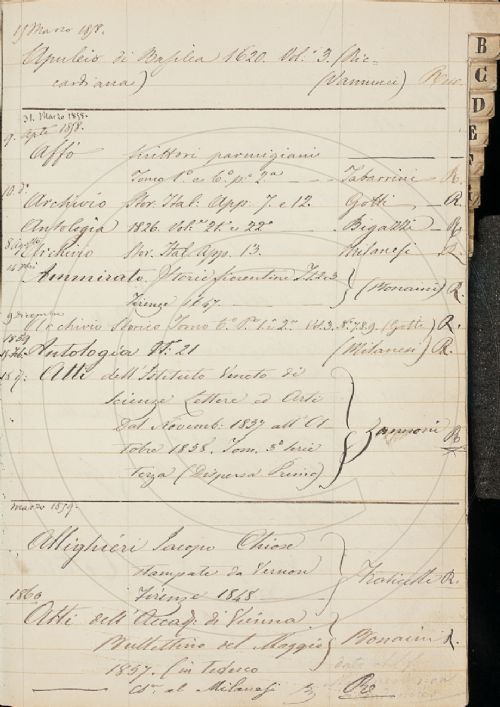 15 Marzo 1858.
Apuleio di Basilea 1620. Vol.e 3. (Ric-
cardiana) (Vannucci) Rice.
31. Marzo 1858.
9. Aple 1858.
Affò Scrittori parmigiani
Tomo 1º e 6º p.e 2a Tabarrini R.
10 dº Archivio Stor. Ital: App. 7. e 12. Gotti R.
Antologia 1826. Vol.mi 21º e 22º Bigazzi R.
Archivio Stor. Ital App. 13. Milanesi R.
Ammirato. Istorie fiorentine T. 2 e 3
Firenze 1647. (Bonaini) R.
9 dicembre Archivio Storico Tomo 6º P.e 1a 2a Vol. 3. N.i 7.8.9 (Gotti) R.
1859
Antologia Nº 21 (Milanesi) R.
Atti dell'Istituto Veneto di
Scienze Lettere ed Arti
Dal Novemb: 1857 all'Ot
tobre 1858. Tom. 3º Serie
terza (Dispensa Prima) Zannoni R
Marzo 1859.
Allighieri Iacopo Chiose
stampate da Vernon
Firenze 1848 Fraticelli R.
1860
Atti dell'Accad. di Vienna
Bullettino del Maggio Bonaini R.
1857. (in tedesco
al Milanesi Re
B
C
D
E
F